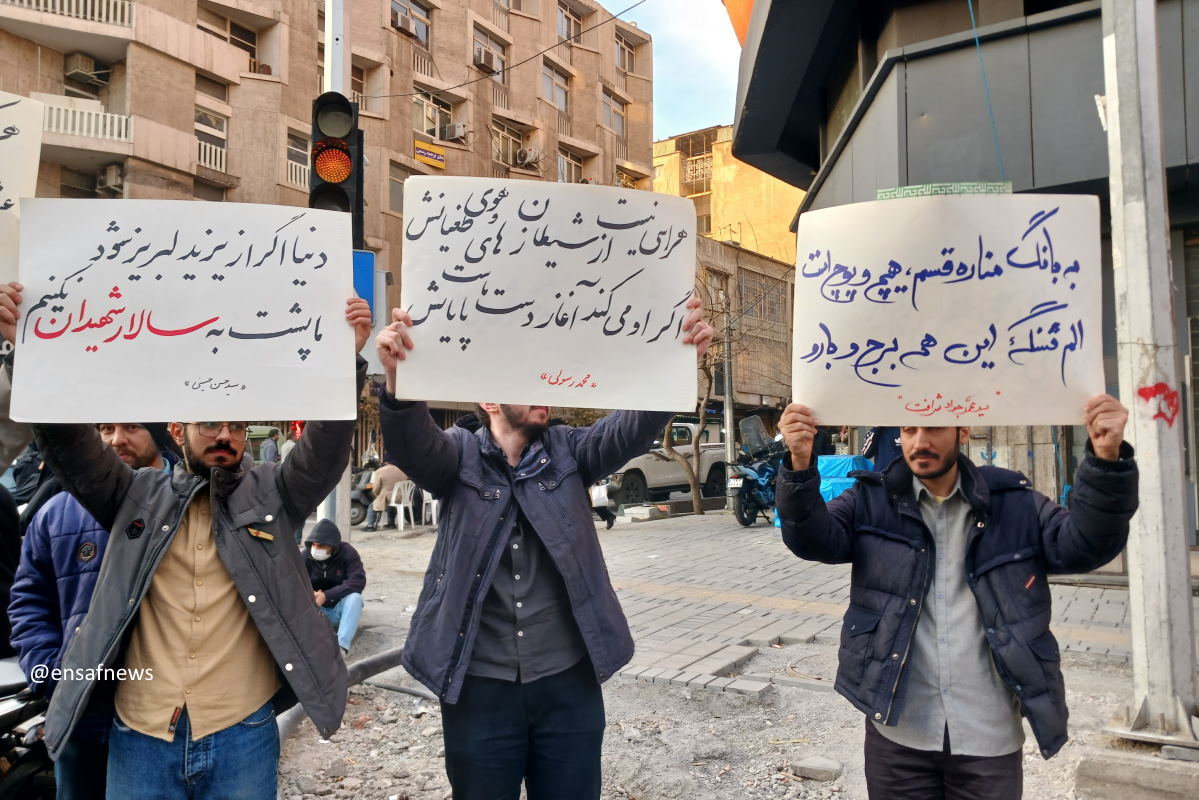 به بانگ مناره قسم، هیچ و پوچ است
الم شنگهٔ این همه برج و بارو
"سید محمدجواد شرافت"
هراسی نیست از شیطان و های و هوی طغیانش
اگر او می کند آغاز دست ماست پایانش
«محمد رسولی»
دنیا اگر از یزید لبریز شود
ما پشت به سالار شهیدان نکنیم
«سید حسن حسینی»
@ensafnews